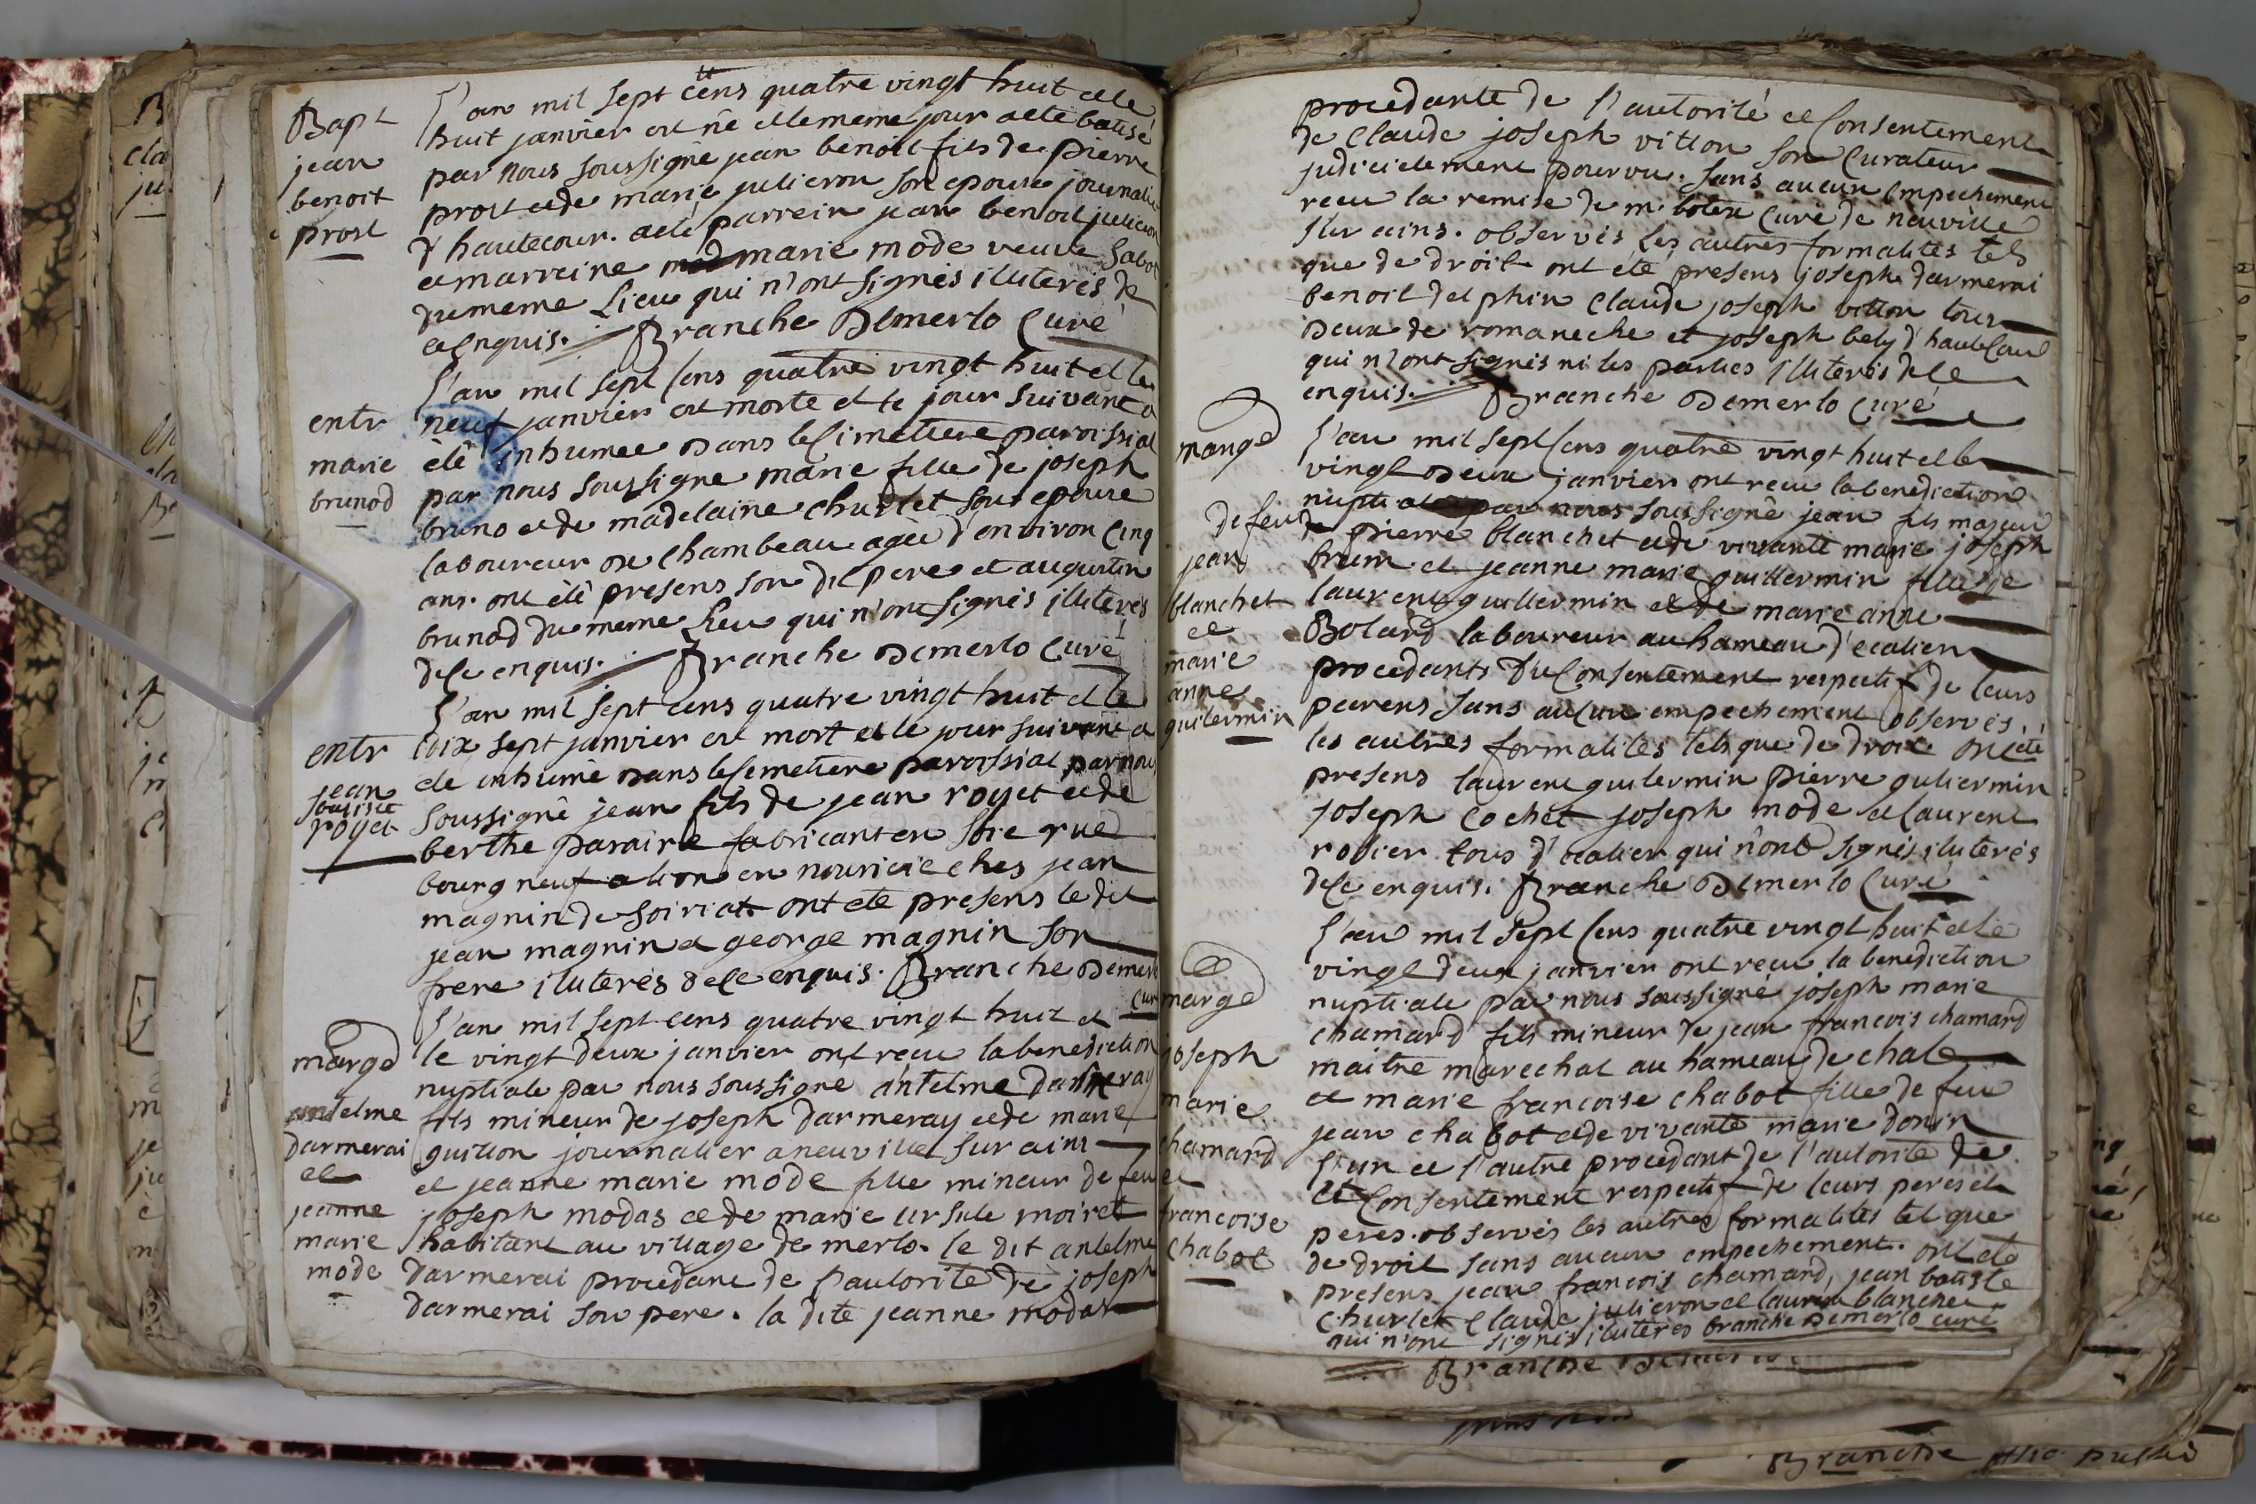 Bapt
jean
benoit
prost
L'an mil sept cens quatre vingt huit et le
huit janvier est né et le meme jour a eté batisé
par nous soussigné jean benoit fils de pierre
prost et de marie julieron son epouse journalier
d'hautecour. a eté parrein jean benoit julieron
et marreine marie mode veuve Sabot
du meme Lieu qui n'ont signés illuterés de
ce Enquis. Branche Demerlo Curé
entr
marie
brunod
L'an mil sept Cens quatre vingt huit et le
neuf janvier est morte et le jour suivant a
été inhumee Dans le Cimetiere paroissial
par nous soussigné marie fille de joseph
bruno et de madelaine Churlet son epouse
laboureur De Chambeau agée d'environ Cinq
ans. ont été presens son dit pere et augustin
brunod du meme Lieu qui n'ont signés illiterés
de Ce enquis. Branche Demerlo Curé
entr
jean
batiste
royet
L'an mil sept cens quatre vingt huit et le
dix sept janvier est mort et le jour suivant a
eté inhumé Dans le Cemetiere paroissial par nous
soussigné jean fils de jean royet et de
berthe paraire fabricant en soie rue
bourgneuf a lion en nouricie ches jean
magnin de soiriat ont eté presens le dit
jean magnin et george magnin son
frere iluterés de Ce enquis. Branche Demerlo
Curé
marge
antelme
Darmerai
et
jeanne
marie
mode
L'an mil sept cens quatre vingt huit et
le vingt deux janvier ont recu la benediction
nuptiale par nous soussigné antelme Darmeray
fils mineur de joseph Darmeray et de marie
guitton journalier a neuville sur ains
et jeanne marie mode fille mineur de feu
joseph modas et de marie ursule moiret
habitant au village de merlo. le dit antelme
Darmerai procedant de l'autorité de joseph
Darmerai son pere. la dite jeanne modas
procedante de l'autorité et Consentement
de Claude joseph vitton son Curateur
judicielement pourvu. sans aucun empechement
recu la remise de mr botex Curé de neuville
sur ains. observés les autres formalités tels
que de droit ont été presens joseph Darmerai
benoit delphin Claude joseph vitton tous
Deux de romaneche et joseph bely d'hautecour
qui n'ont signés ni les parties illiterés de Ce
enquis. Branche Demerlo Curé
marge
de feu
jean
blanchet
et
marie
anne
guilermin
L'an mil sept Cens quatre vingt huit et le
vingt Deux janvier ont recu la benediction
nuptiale par nous soussigné jean fils majeur
de pierre blanchet et de vivante marie joseph
brun et jeanne marie guillermin fille de
laurent guillermin et de marie anne
Bolard laboureur au hameau d'ecalier
procedants Du Consentement respectif de leurs
parens sans aucun empechement observés
les autres formalités tels que de droit ont été
presens laurent guilermin pierre guliermin
joseph Cochet joseph mode et laurent
rovier tous d'ecalier qui n'ont signés iluterés
de Ce enquis. Branche Demerlo Curé
marge
joseph
marie
chamard
et
francoise
Chabot
L'an mil sept Cens quatre vingt huit et le
vingt deux janvier ont recu la benediction
nuptiale par nous soussigné joseph marie
chamard fils mineur de jean francois chamard
maitre marechal au hameau de chale
et marie francoise chabot fille de feu
jean chabot et de vivante marie donin
l'un et l'autre procedant de l'autorité de
et Consentement respectif de leurs peres et
peres. observés les autres formalités tel que
de droit sans aucun empechement. ont eté
presens jean francois chamard, jean batiste
Churlet Claude julieron et laurent blanchet
qui n'ont signés iluterés branche Demerlo curé
Branche
Branche